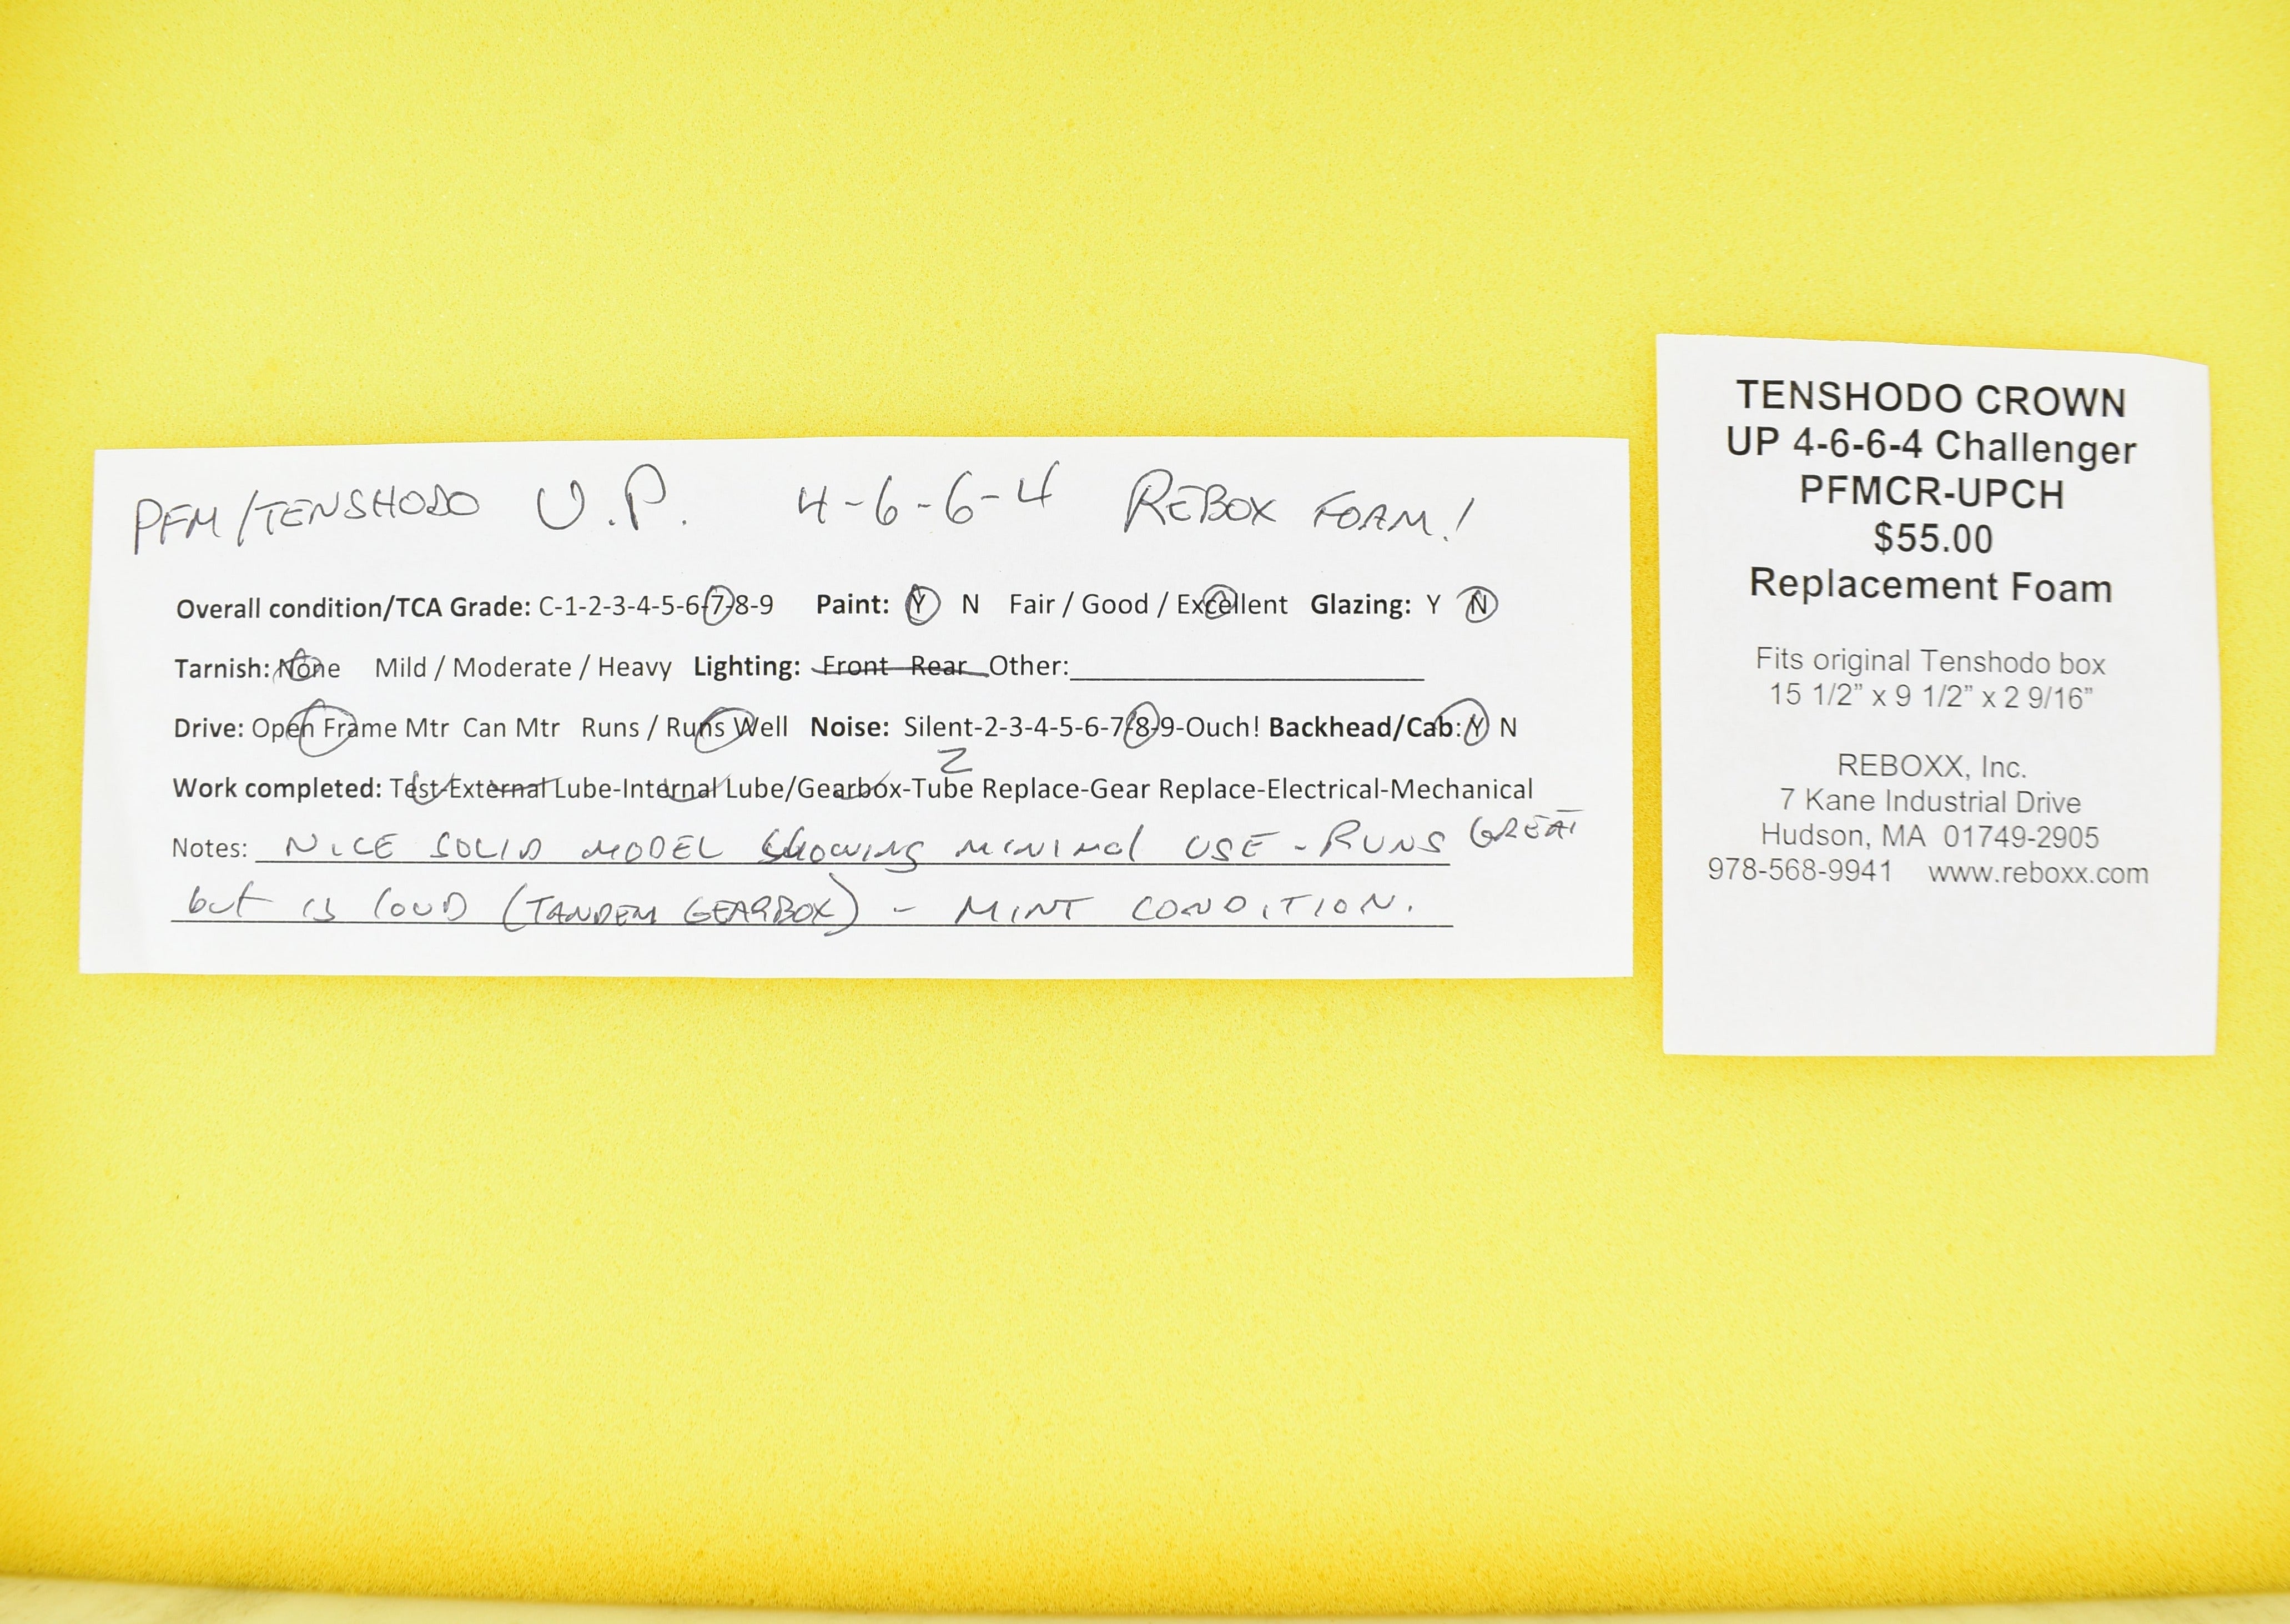 PFM/TENSHODO U.P. 4-6-6-4 REBOX FOAM!
Overall condition/TCA Grade: C-1-2-3-4-5-6-7-8-9 Paint: Y N Fair / Good / Excellent Glazing: Y N
Tarnish: None Mild / Moderate / Heavy Lighting: Front Rear Other:
Drive: Open Frame Mtr Can Mtr Runs / Runs Well Noise: Silent-2-3-4-5-6-7-8-9-Ouch! Backhead/Cab: Y N
2
Work completed: Test-External Lube-Internal Lube/Gearbox-Tube Replace-Gear Replace-Electrical-Mechanical
Notes: NICE SOLID MODEL SHOWING MINIMAL USE - RUNS GREAT
but is LOUD (TANDEM GEARBOX) - MINT CONDITION.
TENSHODO CROWN
UP 4-6-6-4 Challenger
PFMCR-UPCH
$55.00
Replacement Foam
Fits original Tenshodo box
15 1/2” x 9 1/2” x 2 9/16”
REBOXX, Inc.
7 Kane Industrial Drive
Hudson, MA 01749-2905
978-568-9941 www.reboxx.com